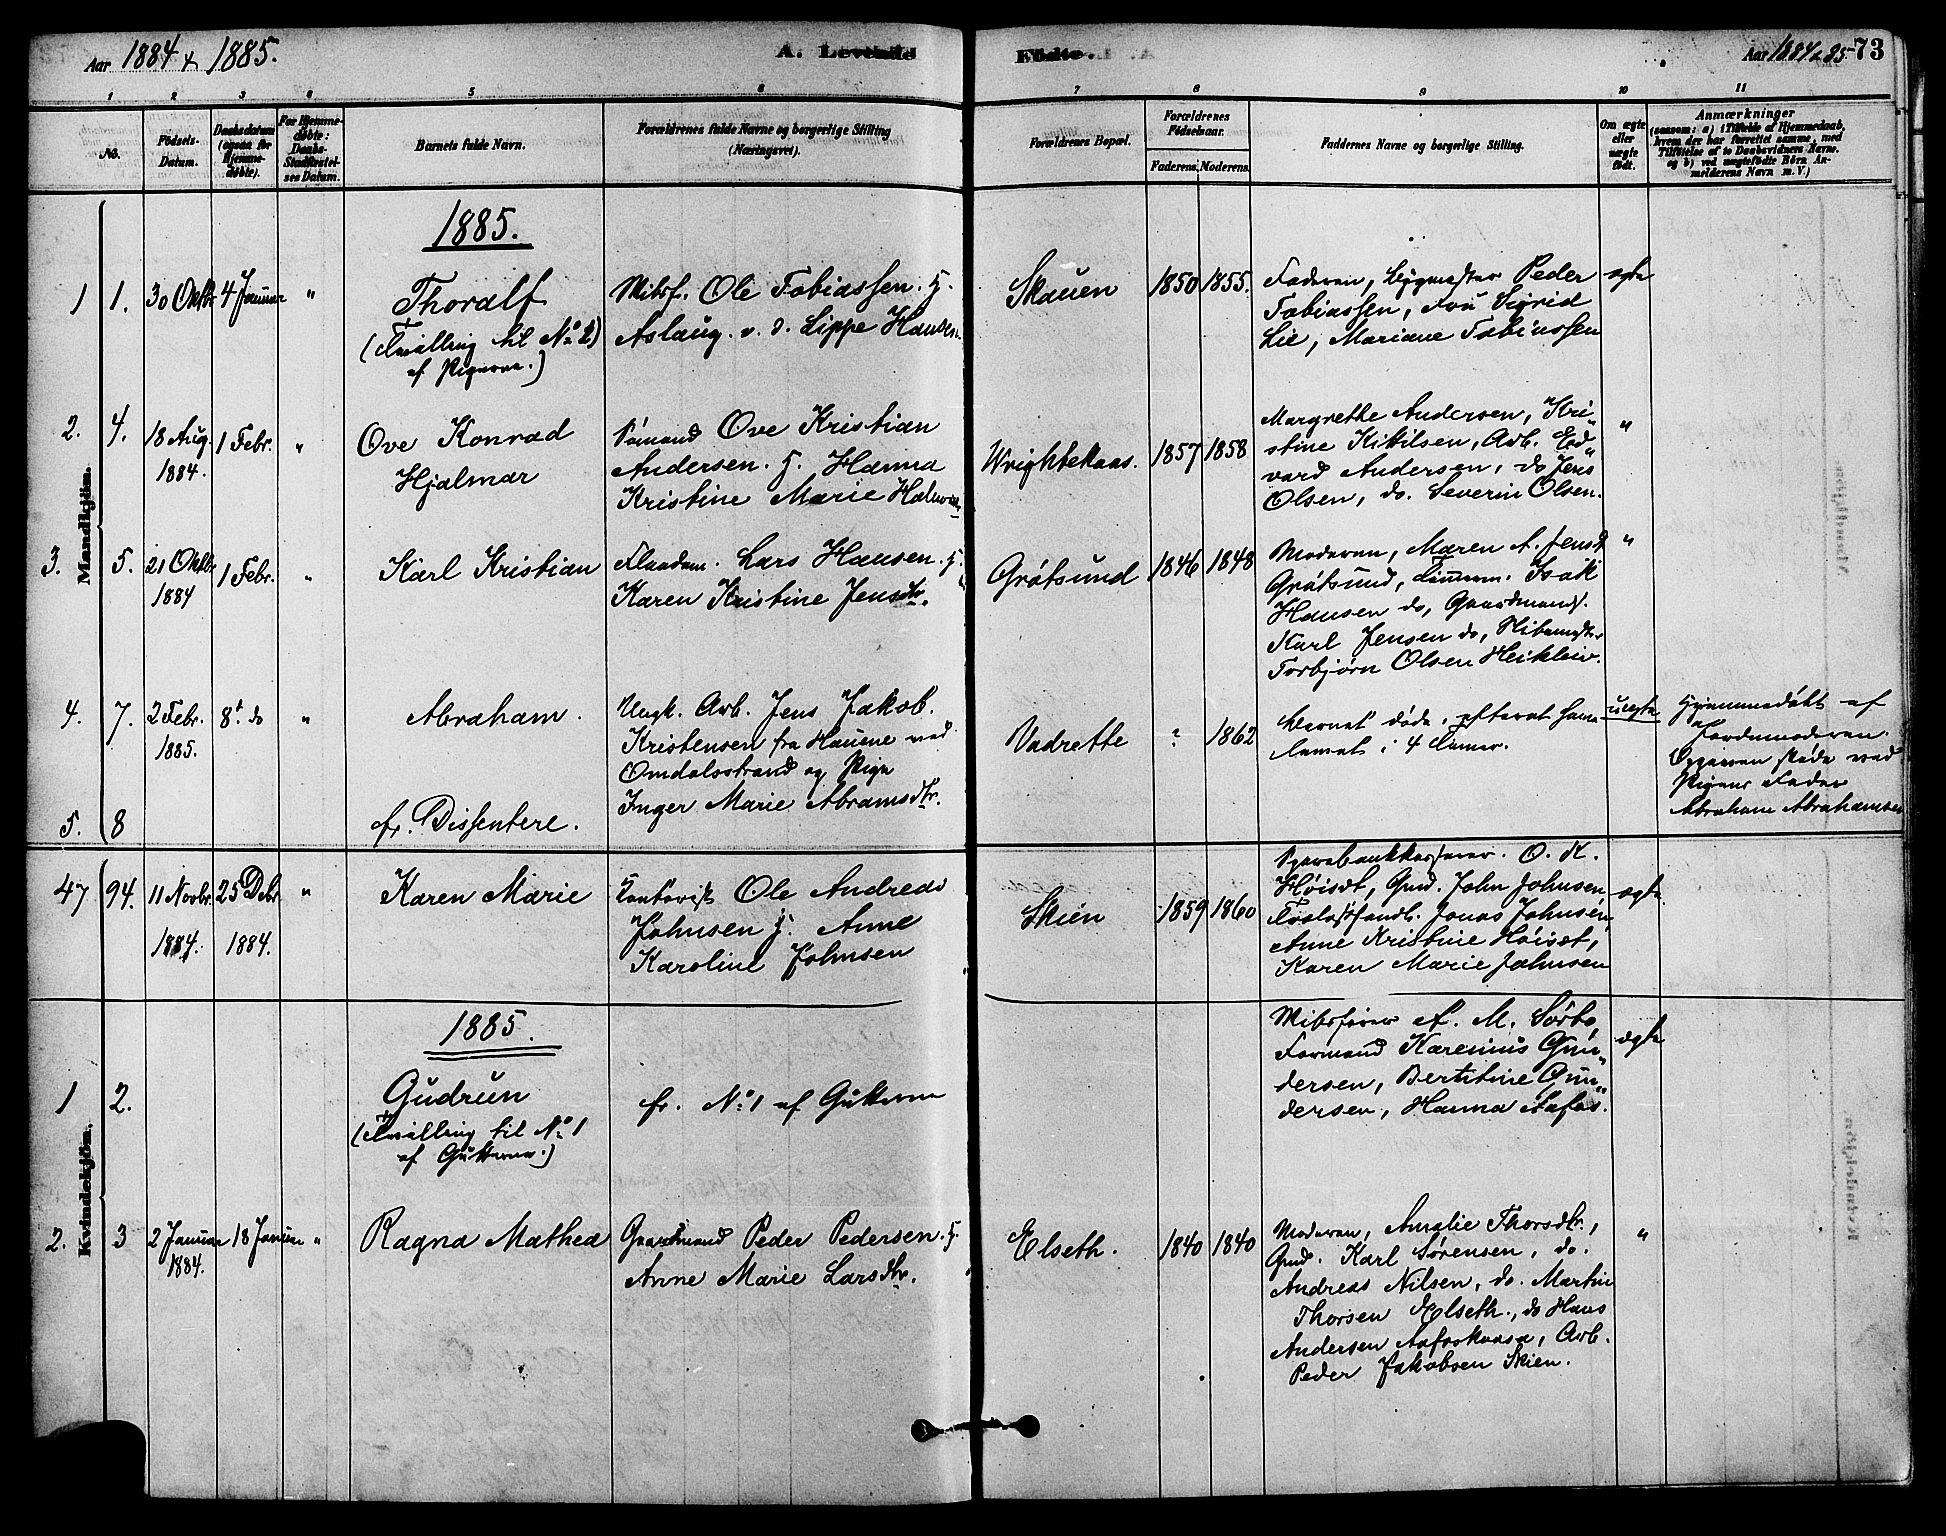 Aar 1884 & 1885.
A. Levende
Fødte.
Aar 1884 & 85. 73
1 2 3 4 5 6 7 8 9 10 11
No.
Fødsels-
Datum.
Daabsdatum
(ogsaa for
Hjemme-
døbte).
For Hjemme-
døbte:
Daabs-
Stadfæstel-
ses Datum.
Barnets fulde Navn.
Forældrenes fulde Navne og borgerlige Stilling
(Næringsvei).
Forældrenes Bopæl.
Forældrenes
Fødselsaar.
Faderens. Moderens.
Faddernes Navne og borgerlige Stilling.
Om ægte
eller
uægte
født.
Anmærkninger
(saasom: a) i Tilfælde af Hjemmedaab,
hvem der har forrettet samme, med
Tilføielse af to Daabsvidners Navne.
og b) ved uægtefødte Børn An-
melderens Navn m. V.)
Mandkjøn.
1885.
1 1. 30 Oktbr 4 Januar "
Thoralf
(Tvilling til No 2)
af Pigerne.)
Ole Tobiassen. H.
Aslaug. v. d. Lippe Hansen.
Skauen 1850 1855.
Faderen, Bygmester Peder
Tobiassen, Fru Sigrid
Lie, Mariane Tobiassen
ægte
2. 4. 18 Aug. 1 Febr. "
1884.
Ove Konrad
Hjalmar
Sømand Ove Kristian
Andersen. H. Hanna
Kristine Marie
Wrightekaas. 1857 1858
Margrethe Andersen, Kri-
stine Kittilsen, Arb. Ed-
vard Andersen, do Jens
Olsen, do. Severin Olsen.
"
3. 5. 21 Oktbr 1 Febr. "
1884
Karl Kristian
Lars Hansen. H.
Karen Kristine Jensdtr.
Grøtsund 1846 1848
Moderen, Maren A. Jensd
Grøtsund, Tømmerm. Isak
Hansen do, Gaardmands.
Karl Jensen do,
Torbjørn Olsen Heikleiv.
"
4. 7. 2 Febr. 8de do "
1885.
Abraham.
Ungk. Arb. Jens Jakob.
Kristensen fra Hauene ved
Omdalsstrand og Pige
Inger Marie Abramsdtr.
Vadrette ? 1862
Barnet døde, efterat have
levnet i 4 Timer.
uægte
Hjemmedøbt af
Jordemoderen.
Opgaven skede ved
Pigens Fader
Abraham Abrahamsen
5. 8
cfr. Dissentere.
47 94. 11 Novbr 25 Debr "
1884. 1884.
Karen Marie
Kontorist Ole Andreas
Johnsen H. Anne
Karoline Johnsen
Skien 1859 1860
Sparebankkasserer. O. K.
Høisæt, Gmd. John Johnsen
Jonas Johnsen,
Anne Kristine Høisæt,
Karen Marie Johnsen
ægte.
Kvindekjøn.
1885.
1 2.
Gudrun
(Tvilling til No 1
af Gutterne.)
cfr. No 1 af Gutterne
A. M. Sørbo,
Formand Karenius Gun-
dersen, Bertatine Gun-
dersen, Hanna Aafos.
ægte
2. 3 2 Januar 18 Januar "
1884.
Ragna Mathea
Gaardmand Peder Pedersen. H.
Anne Marie Larsdtr.
Elseth. 1840 1840
Moderen, Amalie Thorsdtr.,
Gmd. Karl Sørensen, do.
Andreas Nilsen, do. Martin
Thorsen Elseth., do Hans
Andersen Aafoskaasa, Arb.
Peder Jakobsen Skien.
"